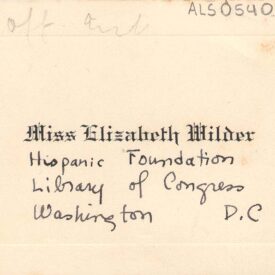 ALS0540
Miss Elizabeth Wilder
Hispanic Foundation
Library of Congress
Washington D.C